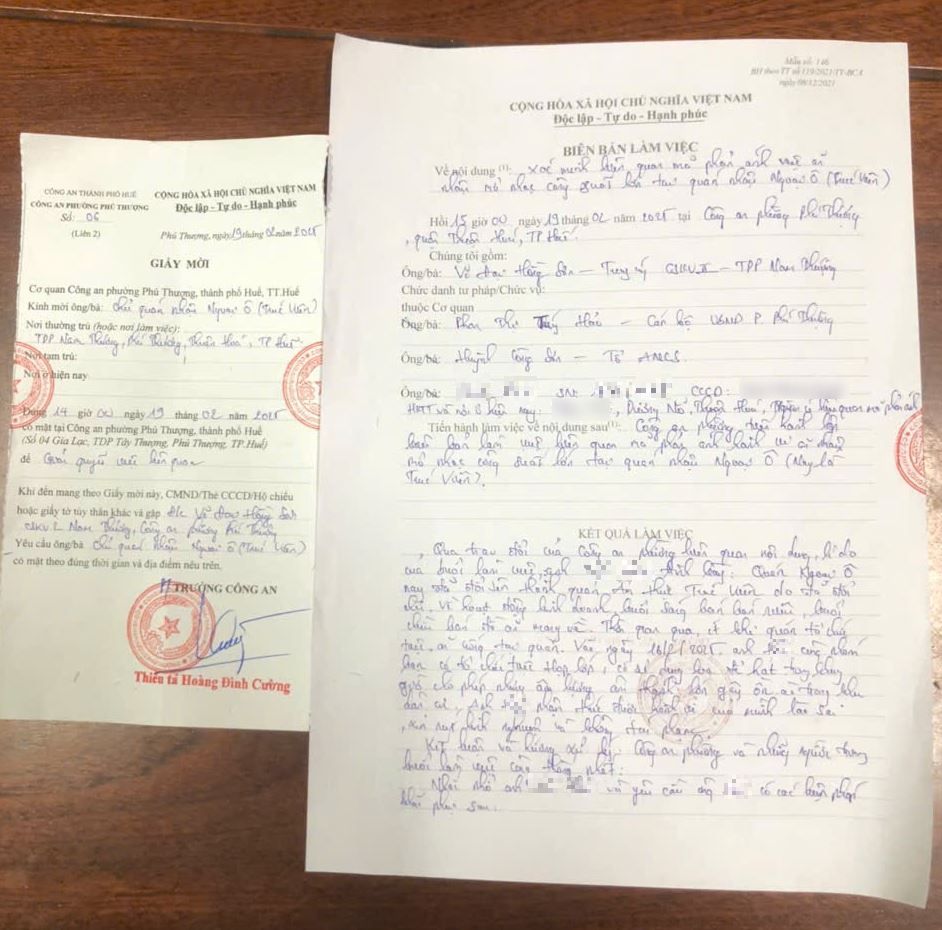 CÔNG AN THÀNH PHỐ HUẾ
CÔNG AN PHƯỜNG PHÚ THƯỢNG
Số: 06
(Liên 2)
CỘNG HÒA XÃ HỘI CHỦ NGHĨA VIỆT NAM
Độc lập - Tự do - Hạnh phúc
Phú Thượng, ngày 19 tháng 02 năm 2025
GIẤY MỜI
Cơ quan Công an phường Phú Thượng, thành phố Huế, TT.Huế
Kính mời ông/bà: chủ quán nhậu Ngoại Ô (Trúc Viên)
Nơi thường trú (hoặc nơi làm việc):
TDP Nam Thượng, Phú Thượng, Thuận Hoá, TP Huế
Nơi tạm trú:
Nơi ở hiện nay
Đúng 14 giờ 00 ngày 19 tháng 02 năm 2025
có mặt tại Công an phường Phú Thượng, thành phố Huế
(Số 04 Gia Lạc, TDP Tây Thượng, Phú Thượng, TP.Huế)
để Giải quyết việc liên quan
Khi đến mang theo Giấy mời này, CMND/Thẻ CCCD/Hộ chiếu
hoặc giấy tờ tùy thân khác và gặp đ/c Võ Hồng Sơn
CSKV 2 Nam Thượng, Công an phường Phú Thượng
Yêu cầu ông/bà chủ quán nhậu Ngoại Ô (Trúc Viên)
có mặt theo đúng thời gian và địa điểm nêu trên.
TRƯỞNG CÔNG AN
Thiếu tá Hoàng Đình Cường
Mẫu số: 146
BH theo TT số 119/2021/TT-BCA
ngày 08/12/2021
CỘNG HÒA XÃ HỘI CHỦ NGHĨA VIỆT NAM
Độc lập - Tự do - Hạnh phúc
BIÊN BẢN LÀM VIỆC
Về nội dung (1): Xác minh liên quan phản ánh việc ăn
nhậu mở nhạc công suất lớn tại quán nhậu Ngoại Ô (Trúc Viên)
Hồi 15 giờ 00 ngày 19 tháng 02 năm 2025 tại Công an phường Phú Thượng
, quận Thuận Hoá, TP Huế.
Chúng tôi gồm:
Ông/bà: Võ Hồng Sơn – Trung úy CSKV – TDP Nam Thượng
Chức danh tư pháp/Chức vụ:
thuộc Cơ quan
Ông/bà: Phan Thị Hảo – Cán bộ UBND P. Phú Thượng
Ông/bà: Huỳnh Công Sơn – Tổ ANCS.
Ông/bà: SN: CCCD:
HKTT và nơi ở hiện nay: Dương Nổ, Thuận Hoá,
Tiến hành làm việc về nội dung sau(1): Công an phường tiến hành lập
biên bản làm việc liên quan phản ánh hành vi ăn nhậu
mở nhạc công suất lớn tại quán nhậu Ngoại Ô (Nay là
Trúc Viên).
KẾT QUẢ LÀM VIỆC
Qua trao đổi của Công an phường liên quan nội dung, lí do
của buổi làm việc, anh Quán Ngoại Ô
nay đổi tên thành quán ẩm thực Trúc Viên do
chủ. Về hoạt động kinh doanh, buổi sáng bán buổi
chiều bán đồ ăn mang về. Thời gian qua, quán tổ chức
tiệc, ăn uống tại quán. Vào ngày 16/2/2025, anh cùng nhóm
bạn có tổ chức tiệc họp lớp, có sử dụng loa để hát trong khung
giờ cho phép nhưng âm lượng âm thanh lớn gây ồn ào trong khu
dân cư, anh nhận thức được hành vi của mình là sai
, xin rút kinh nghiệm và không tái phạm.
Kết luận và hướng xử lý: Công an phường và những người trong
buổi làm việc cùng thống nhất:
Nhắc nhở anh và yêu cầu ông có các biện pháp
khắc phục sau: